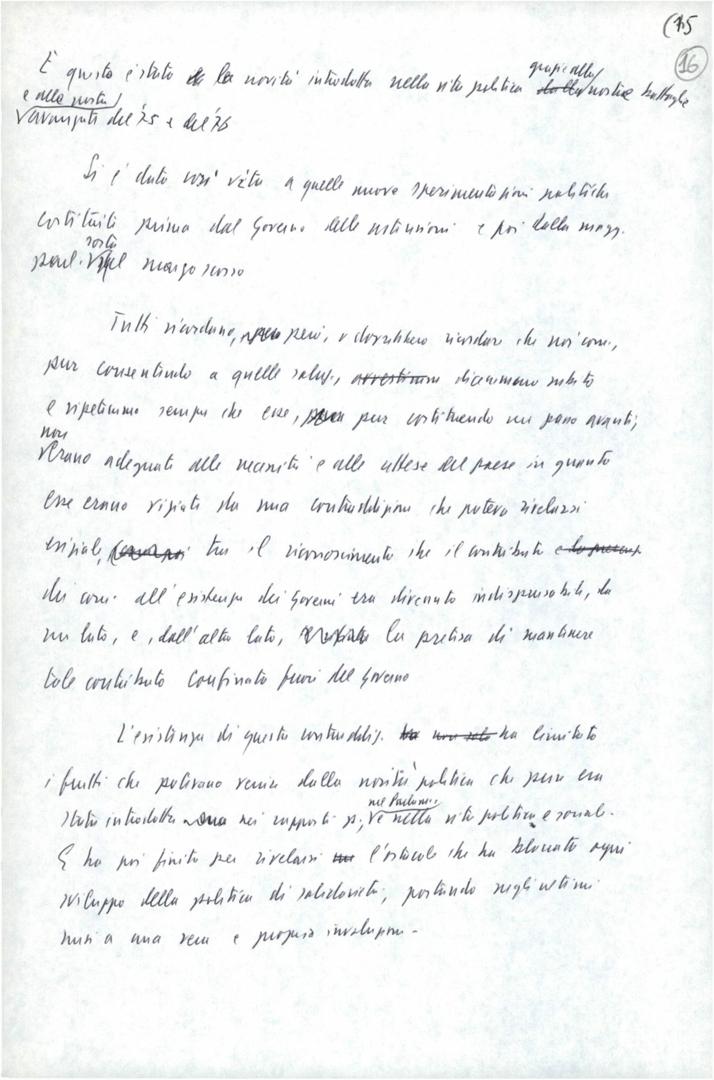 (15
16
È questa è stata la novità introdotta nella vita politica grazie alla nostra battaglia
e alla nostra
avanzata del '75 e del '76
Si è dato così vita a quelle nuove sperimentazioni politiche
costituite prima dal Governo delle astensioni e poi dalla magg.
parl. sorta nel marzo scorso
Tutti ricordano, però, o dovrebbero ricordare che noi com.,
pur consentendo a quelle soluz., dicemmo subito
e ripetemmo sempre che esse, pur costituendo un passo avanti,
non
erano adeguate alle necessità e alle attese del paese in quanto
esse erano viziate da una contraddizione che poteva rivelarsi
esiziale, tra il riconoscimento che il contributo
dei com. all'esistenza dei Governi era divenuto indispensabile, da
un lato, e, dall'altro lato, la pretesa di mantenere
tale contributo confinato fuori del Governo
L'esistenza di questa contraddiz. ha limitato
i frutti che potevano venire dalla novità politica che pure era
stata introdotta nei rapporti p., nel Parlam. e nella vita politica e sociale.
E ha poi finito per rivelarsi l'ostacolo che ha bloccato ogni
sviluppo della politica di solidarietà, portando negli ultimi
mesi a una vera e propria involuzione.